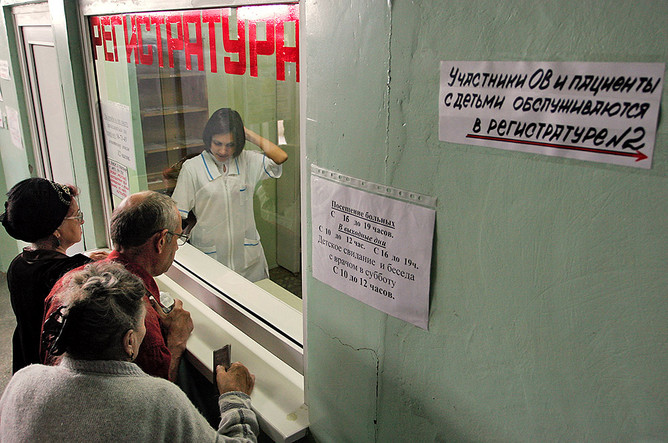 РЕГИСТРАТУРА
УЧАСТНИКИ ОВ И ПАЦИЕНТЫ
С ДЕТЬМИ ОБСЛУЖИВАЮТСЯ
В РЕГИСТРАТУРЕ №2
Посещение больных
С 16 до 19 часов.
В выходные дни
С 10 до 12 час. С 16 до 19ч.
Детское свидание и беседа
с врачом в субботу
С 10 до 12 часов.